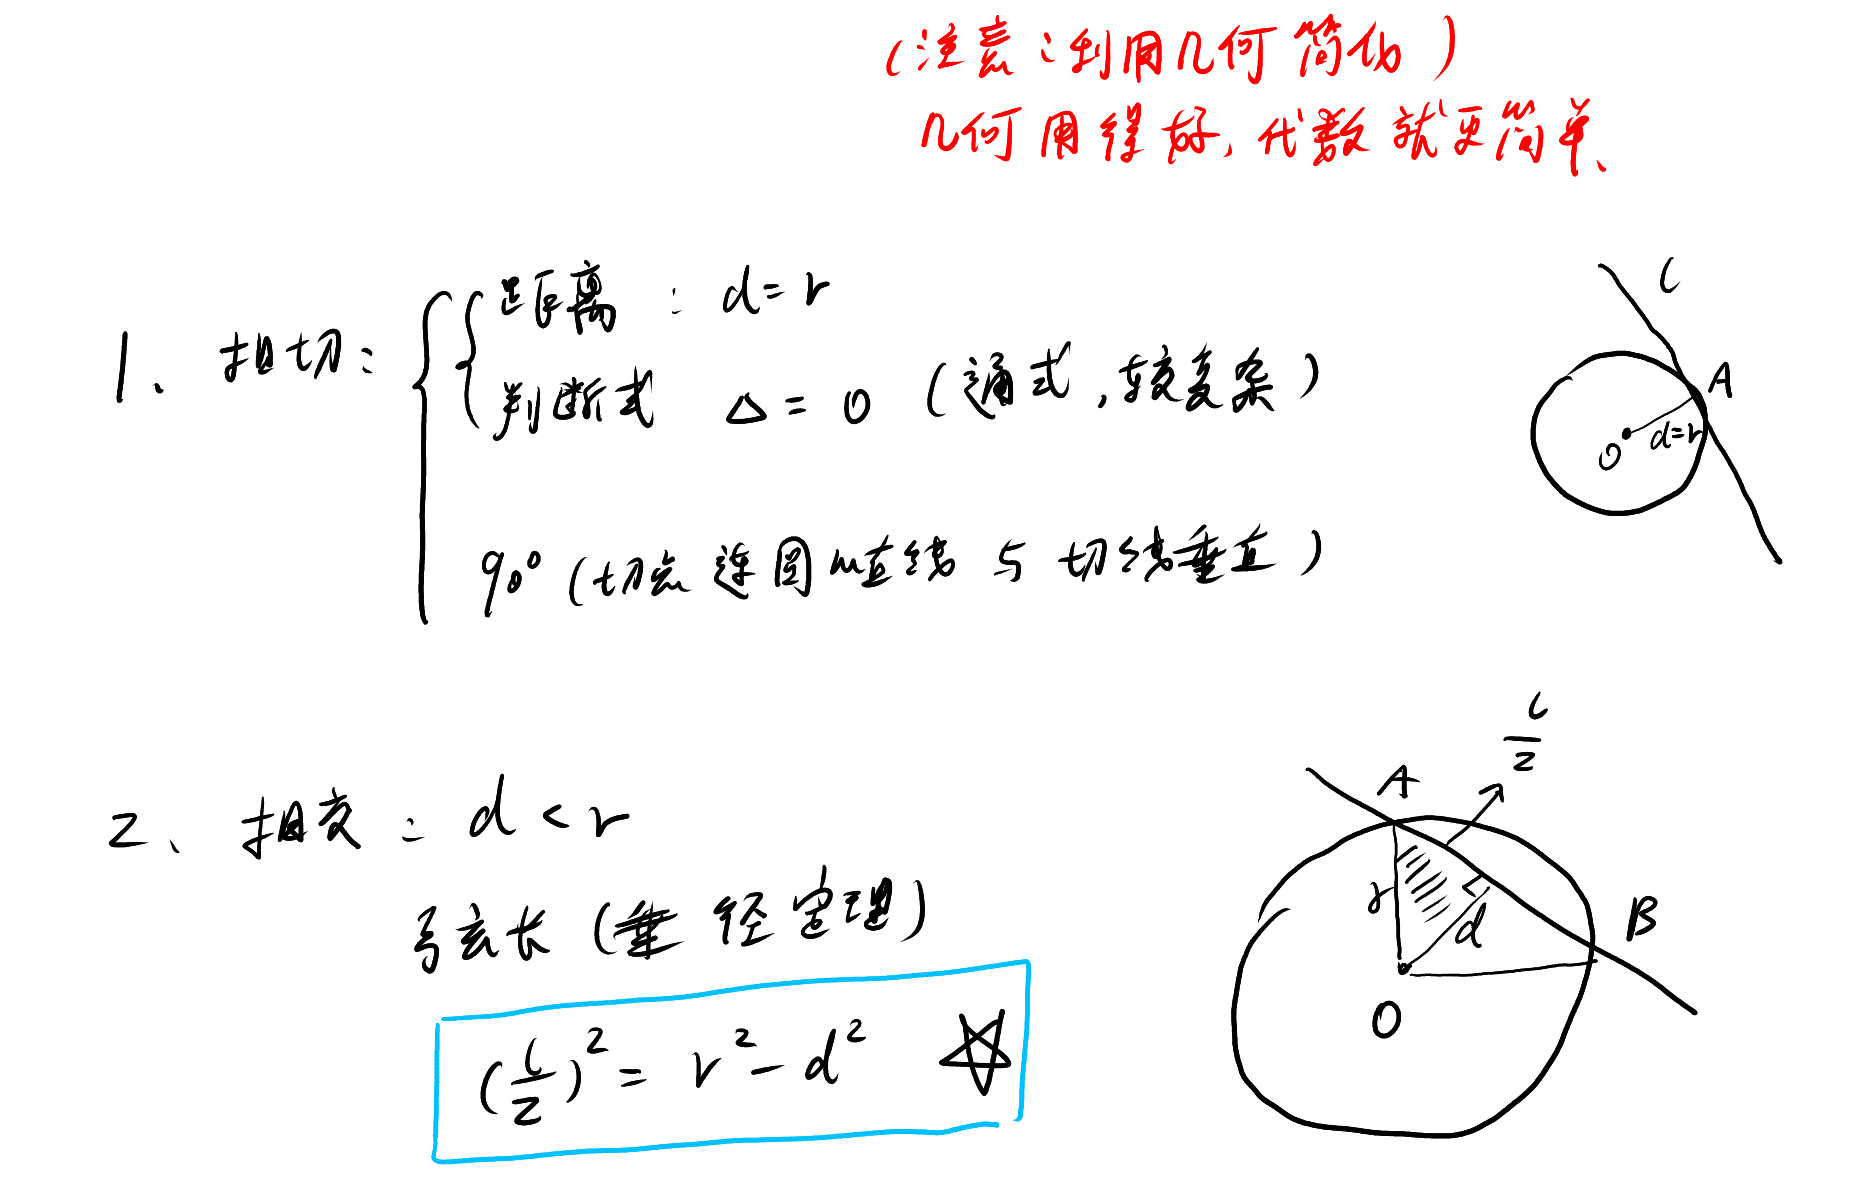 (注意：利用几何简化)
几何用得好，代数就更简单、
1、相切：
距离：d=r
判断式 Δ=0 (通式，较复杂)
90° (切点连圆心直线与切线垂直)
l
A
O
d=r
2、相交：d<r
弦长 (垂径定理)
(l/2)² = r² - d² ☆
l/2
A
r
d
B
O